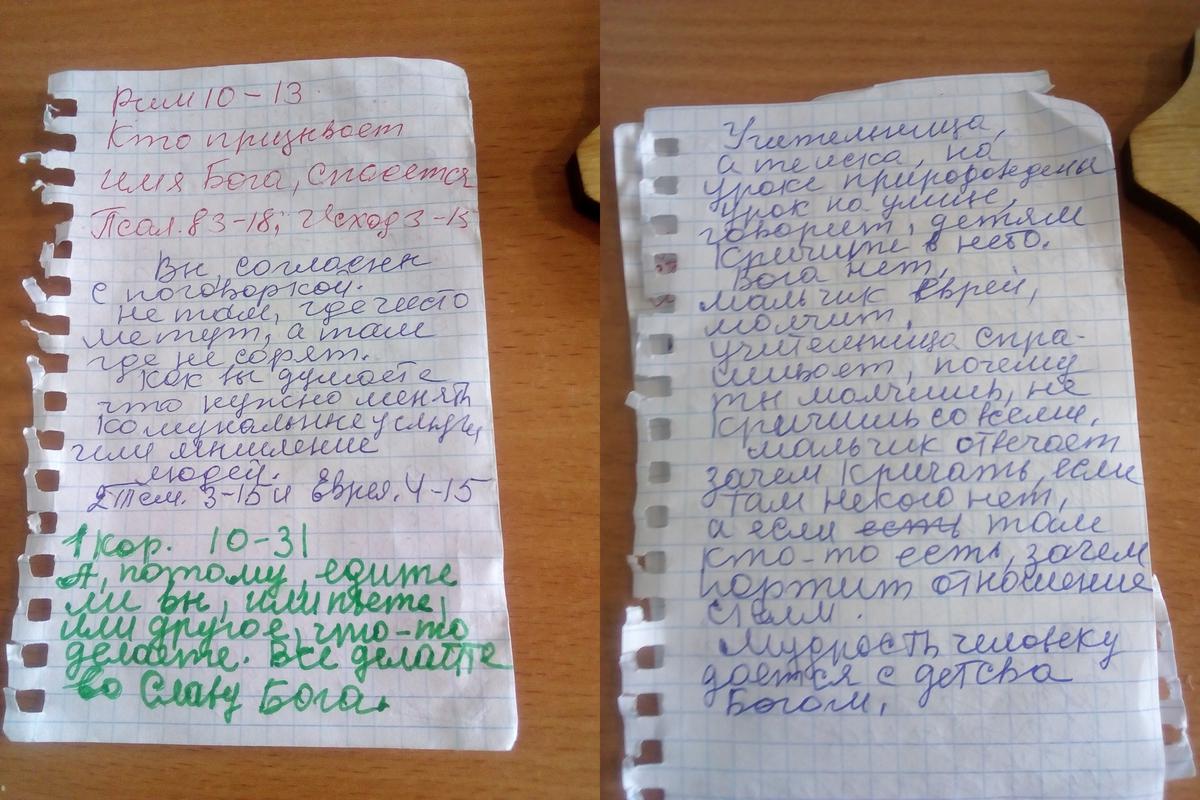 Рим 10-13
Кто призывает
имя Бога, спасется
Псал. 83-18; Исход 3-15
Вы, согласны
с поговоркой.
не там, где чисто
метут, а там
где не сорят.
Как вы думаете
что нужно менять
комунальные услуги
или мышление
людей.
2 Тем. 3-15 и Еврея. 4-15
1 Кор. 10-31
А, потому, едите
ли вы, или пьете,
или другое, что-то
делаете. Все делайте
во Славу Бога.
Учительница,
атеиска, на
уроке природоведены
урок на улице,
говорит, детям
кричите в небо.
Бога нет,
мальчик еврей,
молчит,
учительница спра-
шивает, почему
ты молчишь, не
кричишь со всеми.
мальчик отвечает
зачем кричать, если
там некого нет,
а если есть там
кто-то есть, зачем
портит отношение
с ним.
Мудрость человеку
дается с детства
Богом,